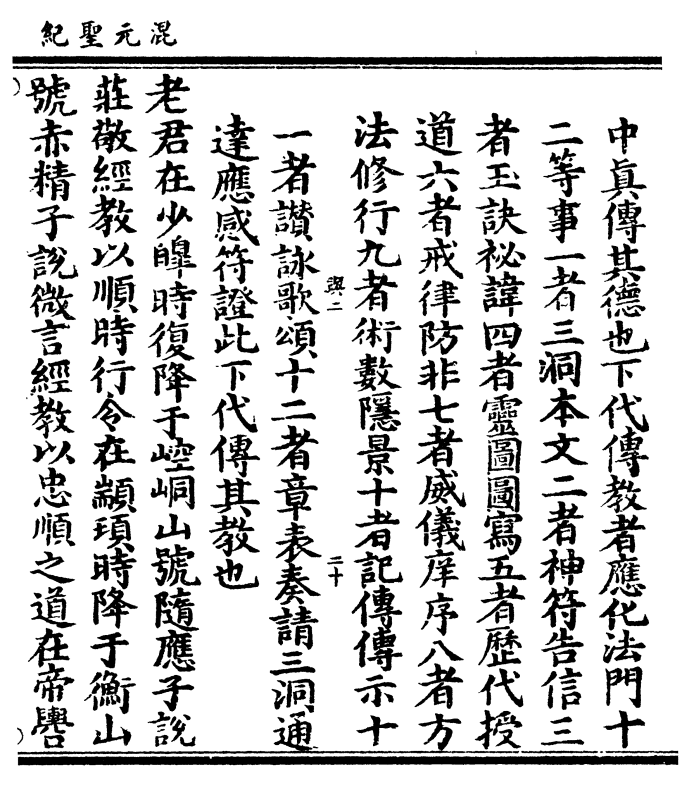 混元聖紀
中眞傳其德也下代傳教者應化法門十
二等事一者三洞本文二者神符告信三
者玉訣祕諱四者靈圖圖寫五者歷代授
道六者戒律防非七者威儀庠序八者方
法修行九者術數隱景十者記傳傳示十
與二
二十
一者讃詠歌頌十二者章表奏請三洞通
達應感符證此下代傳其教也
老君在少皥時復降于崆峒山號隨應子說
莊敬經教以順時行令在顓頊時降于衡山
號赤精子說微言經教以忠順之道在帝嚳